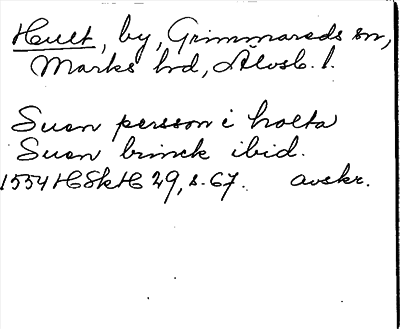 Hult, by, Grimmareds sn,
Marks hd, Älvsb. l.
Suen persson i holta
Suen brinck ibid.
1554 HSkH 29, s. 67. avskr.